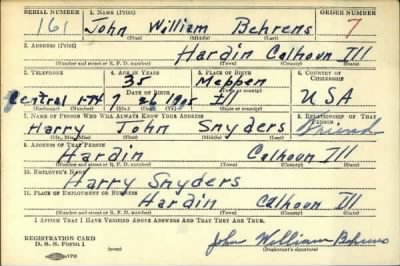 SERIAL NUMBER 1. NAME (Print) ORDER NUMBER
161 John William Behrens 7
(First) (Middle) (Last)
2. ADDRESS (Print)
Hardin Calhoun Ill
(Number and street or R. F. D. number) (Town) (County) (State)
3. TELEPHONE 4. AGE IN YEARS 5. PLACE OF BIRTH 6. COUNTRY OF CITIZENSHIP
35 Meppen
DATE OF BIRTH (Town or county)
Central 7 26 1905 Ill USA
(Exchange) (No.) (Mo.) (Day) (Yr.) (State or country)
7. NAME OF PERSON WHO WILL ALWAYS KNOW YOUR ADDRESS 8. RELATIONSHIP OF THAT PERSON
Harry John Snyders Friend
(Mr., Mrs., Miss) (First) (Middle) (Last)
9. ADDRESS OF THAT PERSON
Hardin Calhoun Ill
(Number and street or R. F. D. number) (Town) (County) (State)
10. EMPLOYER'S NAME
Harry Snyders
11. PLACE OF EMPLOYMENT OR BUSINESS
Hardin Calhoun Ill
(Number and street or R. F. D. number) (Town) (County) (State)
I AFFIRM THAT I HAVE VERIFIED ABOVE ANSWERS AND THAT THEY ARE TRUE.
REGISTRATION CARD
D. S. S. Form 1 (over) John William Behrens
(Registrant's signature)